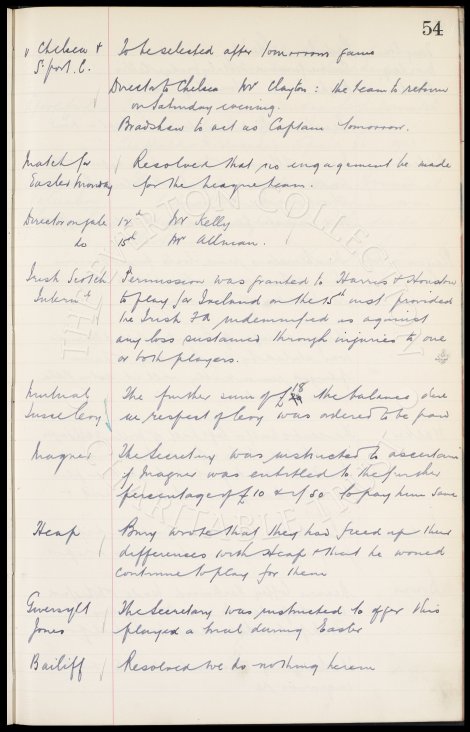 54
v Chelsea & To be selected after tomorrows game
S'port. C.
Director to Chelsea Mr Clayton : the team to return
on Saturday evening.
Bradshaw to act as Captain tomorrow.
Match for Resolved that no engagement be made
Easter Monday for the league team.
Director on gate 12th Mr Kelly
do 15th Mr Allman.
Irish Scotch Permission was granted to Harris & Houston
Internt to play for Ireland on the 15th inst provided
the Irish FA indemnified us against
any loss sustained through injuries to one
or both players.
Mutual The further sum of £18 the balance due
Insce Levy in respect of levy was ordered to be paid
Magner The Secretary was instructed to ascertain
if Magner was entitled to the further
percentage of £10 & if so to pay him same
Heap Bury wrote that they had fixed up their
differences with Heap & that he would
continue to play for them
Gwersyllt The Secretary was instructed to offer this
Jones player a trial during Easter
Bailiff Resolved we do nothing herein
THE EVERTON COLLECTION
CHARITABLE TRUST